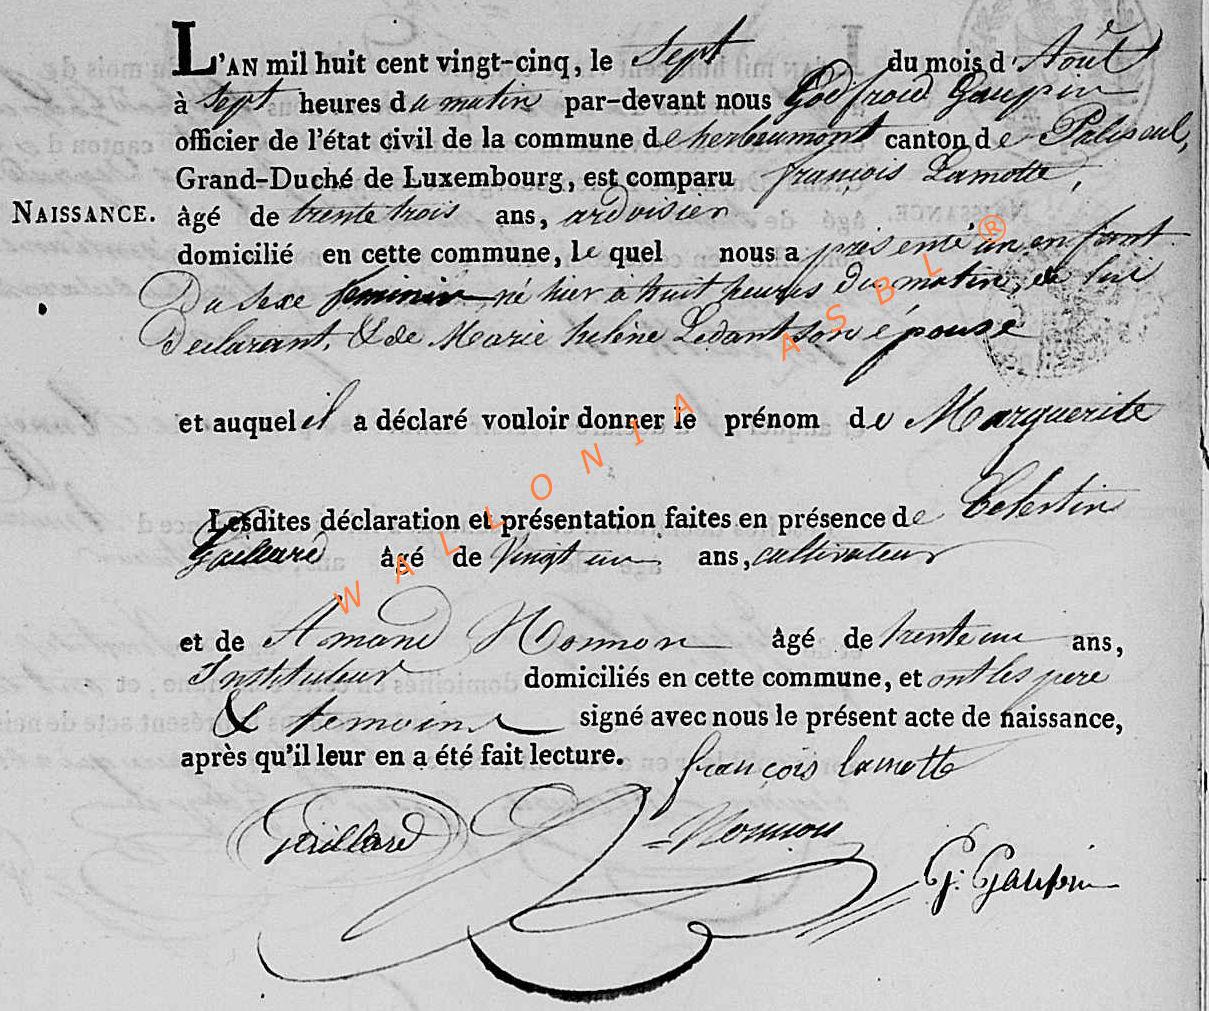 L'AN mil huit cent vingt-cinq, le sept du mois d'Août
à sept heures du matin par-devant nous Godfroid Gaupin
officier de l'état civil de la commune de herbeumont canton de Paliseul,
Grand-Duché de Luxembourg, est comparu françois Lamotte,
NAISSANCE. âgé de trente trois ans, ardoisier
domicilié en cette commune, le quel nous a présenté un enfant
Du sexe feminin, né hier a huit heures du matin, de lui
Declarant, & de Marie heléne Ledant son épouse
et auquel il a déclaré vouloir donner le prénom de Marguerite
Lesdites déclaration et présentation faites en présence de Celestin
Gaillard âgé de vingt un ans, cultivateur
et de Amand Monnon âgé de trente un ans,
Instituteur domiciliés en cette commune, et ont les pere
& temoins signé avec nous le présent acte de naissance,
après qu'il leur en a été fait lecture.
françois lamotte
Gaillard
G. Gaupin
WALLONIA ASBL ®